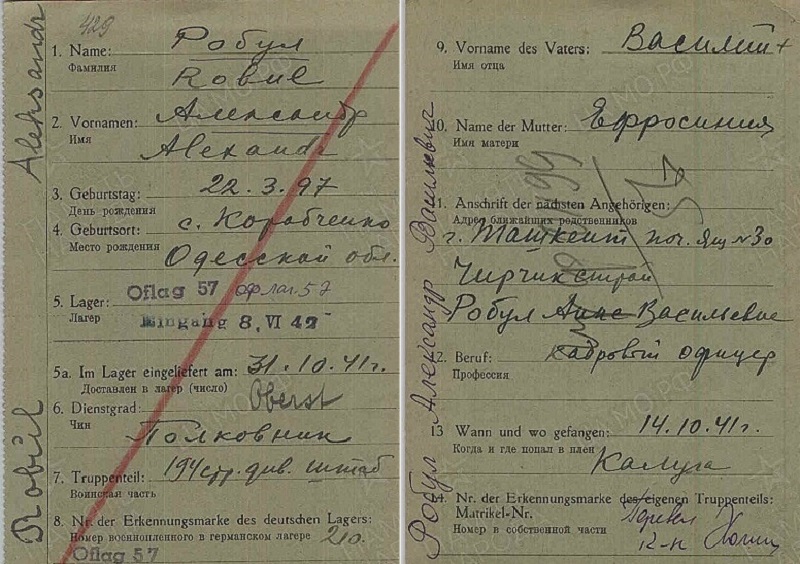 Aleksandr
Robul
429
1. Name: Робул
Фамилия
Robul
2. Vornamen: Александр
Имя
Alexandr
3. Geburtstag: 22.3.97
День рождения
4. Geburtsort: с. Коробченко
Место рождения
Одесской обл.
5. Lager: Oflag 57 Офлаг. 57
Лагерь
Eingang 8. VI 42
5a. Im Lager eingeliefert am: 31.10.41г.
Доставлен в лагерь (число)
6. Dienstgrad: Oberst
Чин
Полковник
7. Truppenteil: 194 стр. див. штаб
Воинская часть
8. Nr. der Erkennungsmarke des deutschen Lagers:
Номер военнопленного в германском лагере 210.
Oflag 57
Робул Александр Васильевич
9. Vorname des Vaters: Василий +
Имя отца
10. Name der Mutter: Ефросиния
Имя матери
11. Anschrift der nächsten Angehörigen:
Адрес ближайших родственников
г. Ташкент поч. ящ №30
Чирчикстрой
Робул Васильевне
12. Beruf: кадровый офицер
Профессия
13 Wann und wo gefangen: 14.10.41г.
Когда и где попал в плен
Калуга
14. Nr. der Erkennungsmarke des/eigenen Truppenteils:
Matrikel-Nr.
Номер в собственной части